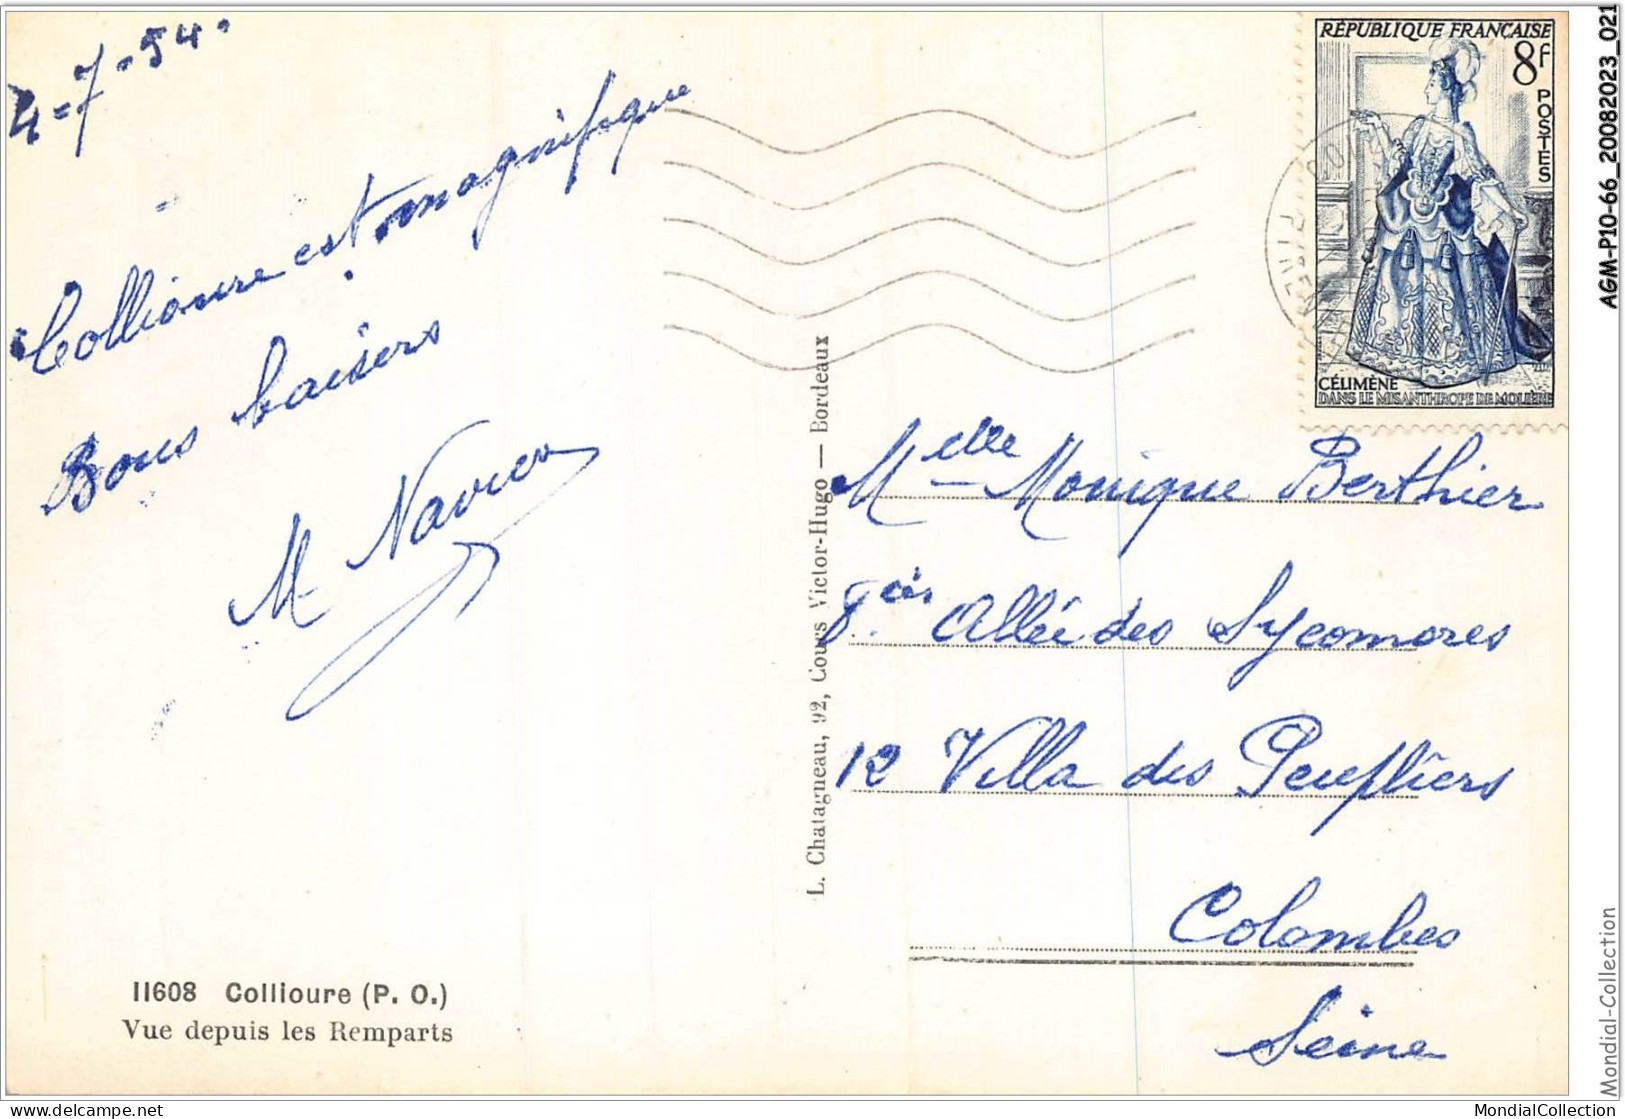 4-7-54.
Collioure est magnifique
Bons baisers
M Navier
11608 Collioure (P. O.)
Vue depuis les Remparts
L. Chatagneau, 92, Cours Victor-Hugo — Bordeaux
RÉPUBLIQUE FRANÇAISE
8F
POSTES
CÉLIMÈNE
DANS LE MISANTHROPE DE MOLIÈRE
Melle Monique Berthier
Allée des Sycomores
12 Villa des Peupliers
Colombes
Seine
AGM-P10-66_20082023_021
Mondial-Collection
MondialCollection